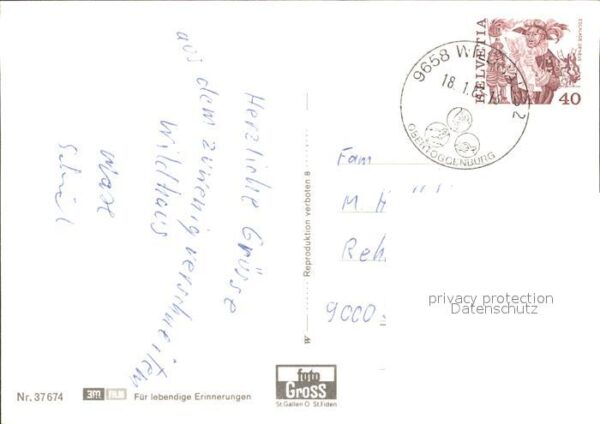 Herzliche Grüsse
aus dem zuwenig verschneiten
Wildhaus
Max
HELVETIA
40
9658 W
18.1.8
OBERTOGGENBURG
Fam
M. H
Reh
9000
privacy protection
Datenschutz
W Reproduktion verboten 8
Nr. 37674
3m
Für lebendige Erinnerungen
foto
Gross
St.Gallen O St.Fiden